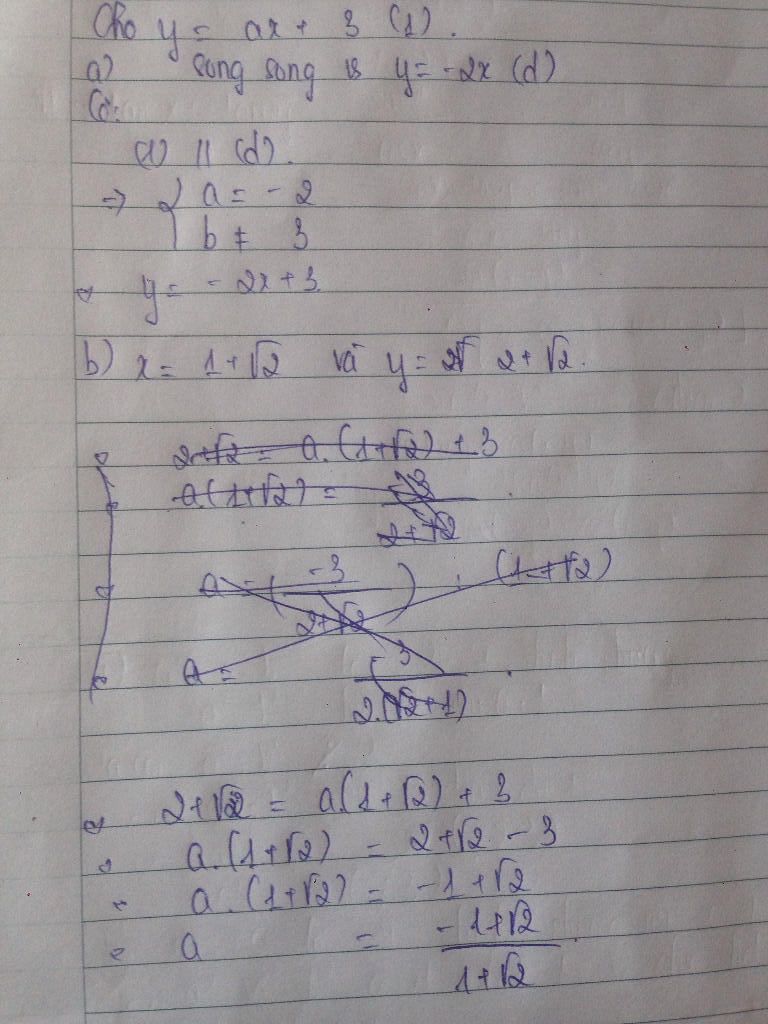 Cho y = ax + 3 (1).
a) song song vs y = -2x (d)
Có:
(1) // (d).
=> { a = -2
b ≠ 3
<=> y = -2x + 3.
b) x = 1 + √2 và y = 2 + √2.
2 + √2 = a.(1 + √2) + 3
a(1 + √2) = -3 / 2 + √2
a = ( -3 / 2 + √2 ) : (1 + √2)
a = -3 / 2.(√2 + 1)
<=> 2 + √2 = a(1 + √2) + 3
<=> a.(1 + √2) = 2 + √2 - 3
<=> a.(1 + √2) = -1 + √2
<=> a = -1 + √2 / 1 + √2